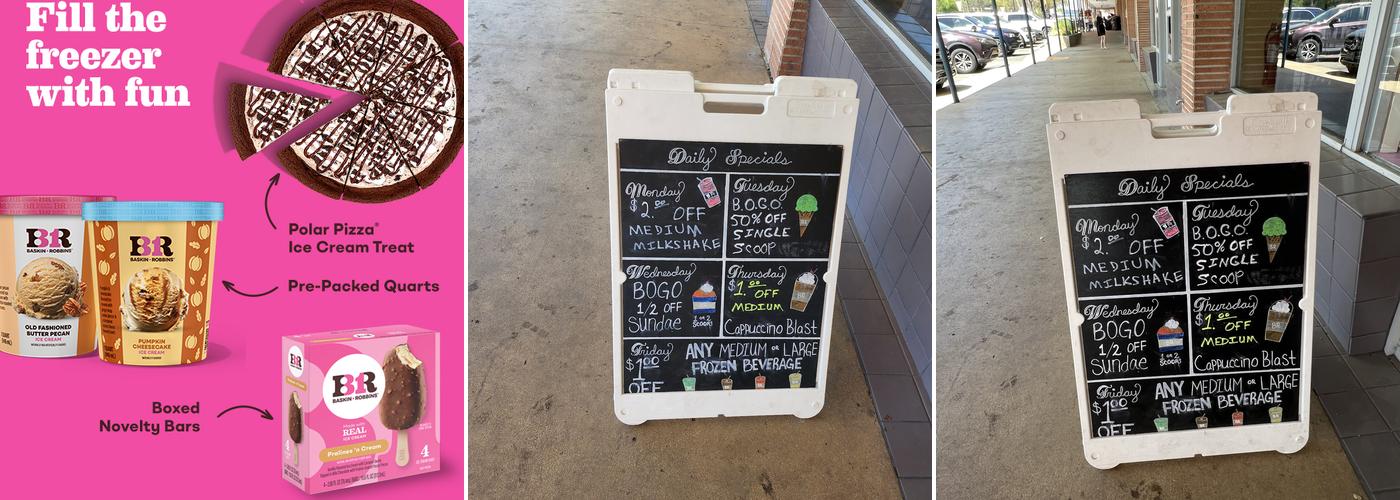 Fill the
freezer
with fun
Polar Pizza®
Ice Cream Treat
BR
BASKIN-ROBBINS
OLD FASHIONED
BUTTER PECAN
ICE CREAM
BR
BASKIN-ROBBINS
PUMPKIN
CHEESECAKE
ICE CREAM
Pre-Packed Quarts
Boxed
Novelty Bars
BR
BR
BASKIN-ROBBINS
Made with
REAL
ICE CREAM
Pralines 'n Cream
4
4
Daily Specials
Monday
$2.00 OFF
MEDIUM
MILKSHAKE
Tuesday
B.O.G.O.
50% OFF
SINGLE
SCOOP
Wednesday
BOGO
1/2 OFF
Sundae
1 or 2
SCOOPS
Thursday
$1.00 OFF
MEDIUM
Cappuccino Blast
Friday
$1.00
OFF
ANY MEDIUM or LARGE
FROZEN BEVERAGE
Daily Specials
Monday
$2.00 OFF
MEDIUM
MILKSHAKE
Tuesday
B.O.G.O.
50% OFF
SINGLE
SCOOP
Wednesday
BOGO
1/2 OFF
Sundae
1 or 2
SCOOPS
Thursday
$1.00 OFF
MEDIUM
Cappuccino Blast
Friday
$1.00
OFF
ANY MEDIUM or LARGE
FROZEN BEVERAGE